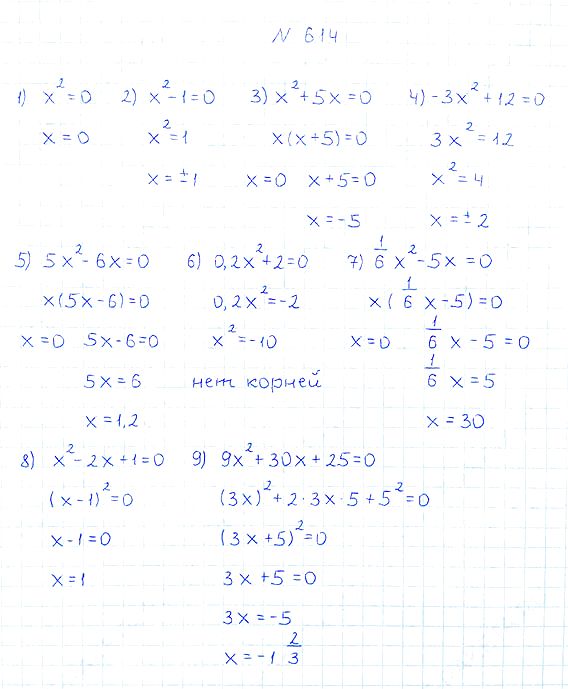 N 614
1) x² = 0
x = 0
2) x² - 1 = 0
x² = 1
x = ±1
3) x² + 5x = 0
x(x + 5) = 0
x = 0 x + 5 = 0
x = -5
4) -3x² + 12 = 0
3x² = 12
x² = 4
x = ±2
5) 5x² - 6x = 0
x(5x - 6) = 0
x = 0 5x - 6 = 0
5x = 6
x = 1,2
6) 0,2x² + 2 = 0
0,2x² = -2
x² = -10
нет корней
7) 1/6 x² - 5x = 0
x(1/6 x - 5) = 0
x = 0 1/6 x - 5 = 0
1/6 x = 5
x = 30
8) x² - 2x + 1 = 0
(x - 1)² = 0
x - 1 = 0
x = 1
9) 9x² + 30x + 25 = 0
(3x)² + 2·3x·5 + 5² = 0
(3x + 5)² = 0
3x + 5 = 0
3x = -5
x = -1 2/3